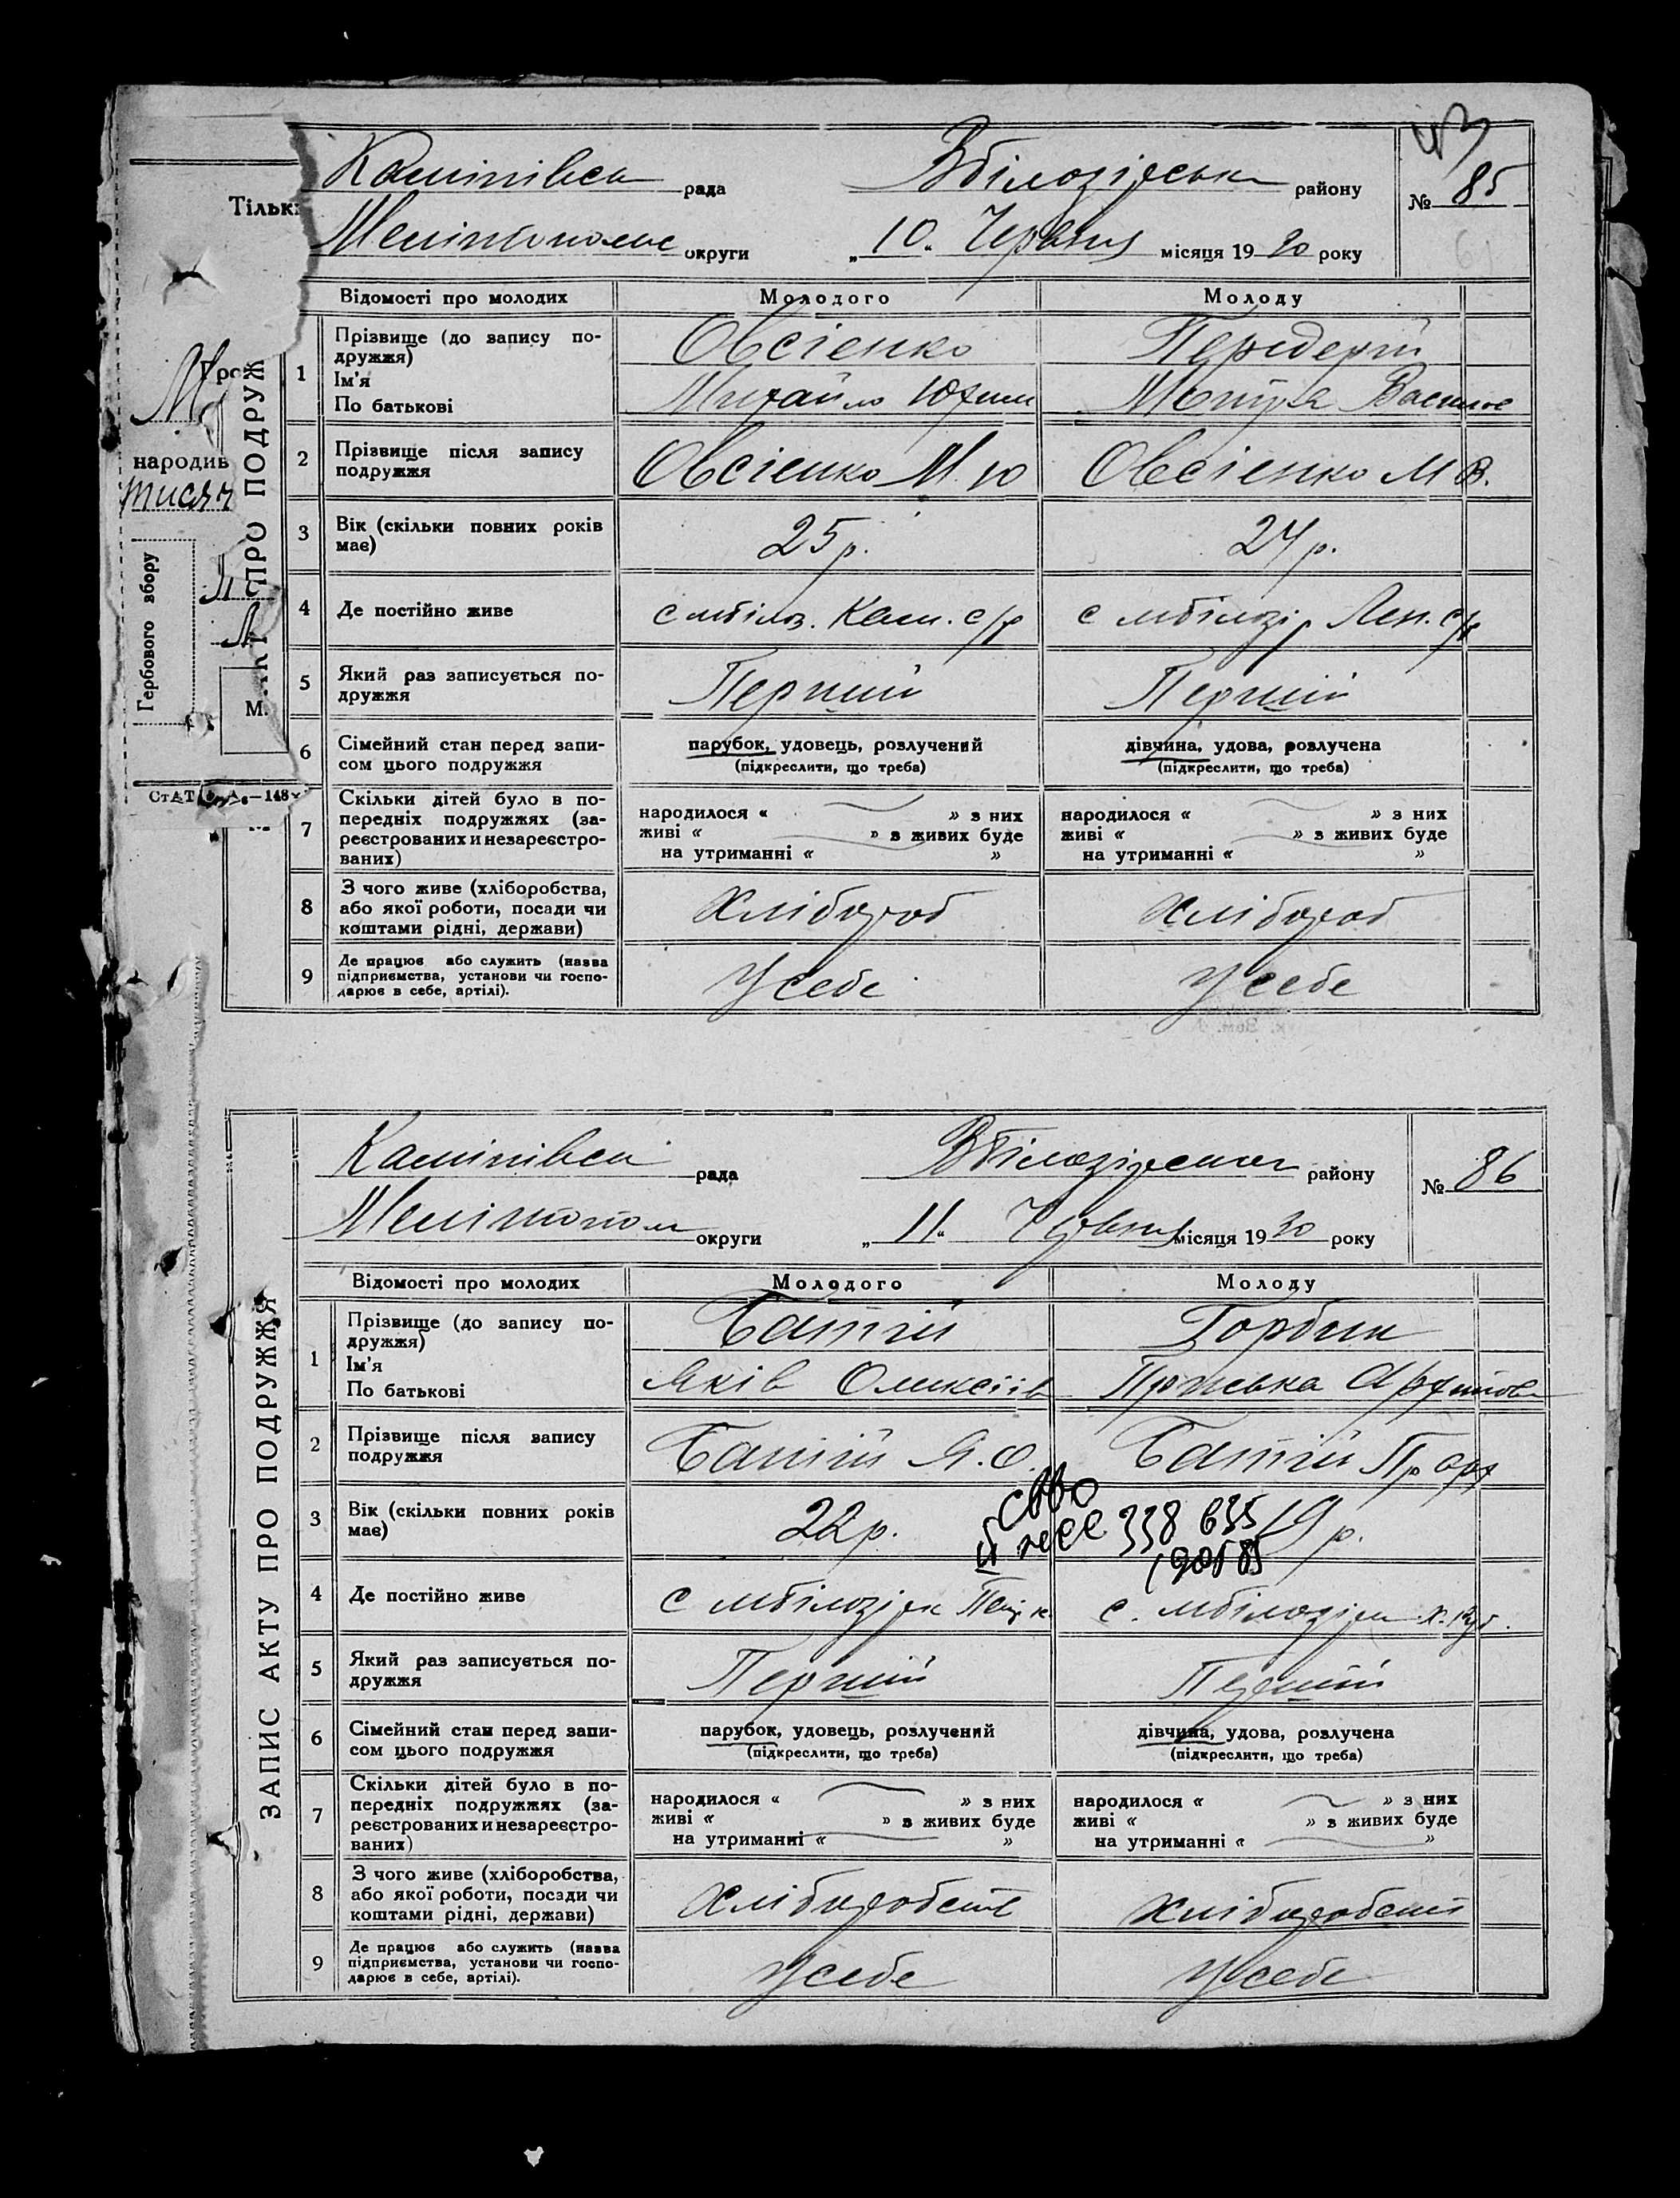 рада
Вбілозірськ району
№ 85
Мелітополс округи
„10“ Червня місяця 1930 року
Тільк
народив
тисяч
Гербового збору
М.
КТ ПРО ПОДРУЖ
Відомості про молодих Молодого Молоду
1 Прізвище (до запису подружжя) Овсієнко Передерій
Ім'я
По батькові Михайло Юхим Мотря Василів
2 Прізвище після запису подружжя Овсієнко М. Ю Овсієнко М В.
3 Вік (скільки повних років має) 25 р. 24 р.
4 Де постійно живе с мбілоз. Кам. с/р с мбілозір Лен. с/р
5 Який раз записується подружжя Перший Перший
6 Сімейний стан перед записом цього подружжя парубок, удовець, розлучений дівчина, удова, розлучена
(підкреслити, що треба) (підкреслити, що треба)
7 Скільки дітей було в попередніх подружжях (зареєстрованих и незареєстрованих)
народилося « » з них народилося « » з них
живі « » з живих буде живі « » з живих буде
на утриманні « » на утриманні « »
8 З чого живе (хліборобства, або якої роботи, посади чи коштами рідні, держави) хлібороб хлібороб
9 Де працює або служить (назва підприємства, установи чи господарює в себе, артілі). У себе У себе
ЗАПИС АКТУ ПРО ПОДРУЖЖЯ
рада
Вбілозірськ району
№ 86
Мелітопол округи
„11“ Червня місяця 1930 року
Відомості про молодих Молодого Молоду
1 Прізвище (до запису подружжя) Батій Горбач
Ім'я
По батькові Яків Олексіїв Приська
2 Прізвище після запису подружжя Батій Я. О. Батій Пр Арх
3 Вік (скільки повних років має) 22 р. 19 р.
338 635
4 Де постійно живе с мбілозірк с. мбілозірк
5 Який раз записується подружжя Перший Перший
6 Сімейний стан перед записом цього подружжя парубок, удовець, розлучений дівчина, удова, розлучена
(підкреслити, що треба) (підкреслити, що треба)
7 Скільки дітей було в попередніх подружжях (зареєстрованих и незареєстрованих)
народилося « » з них народилося « » з них
живі « » з живих буде живі « » з живих буде
на утриманні « » на утриманні « »
8 З чого живе (хліборобства, або якої роботи, посади чи коштами рідні, держави) хліборобств хліборобств
9 Де працює або служить (назва підприємства, установи чи господарює в себе, артілі). У себе У себе